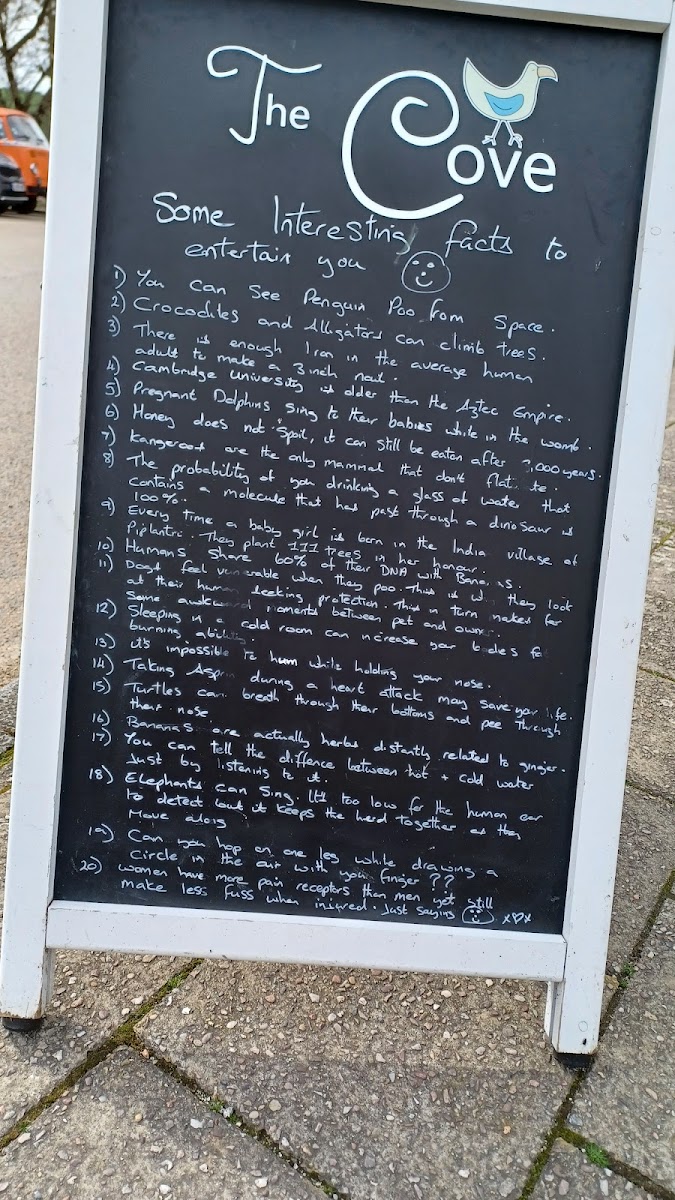 The Cove
Some Interesting facts to
entertain you
1) You can see Penguin Poo from Space.
2) Crocodiles and Alligators can climb trees.
3) There is enough Iron in the average human
adult to make a 3 inch nail.
4) Cambridge University is older than the Aztec Empire.
5) Pregnant Dolphins Sing to their babies while in the womb.
6) Honey does not Spoil, it can still be eaten after 3,000 years.
7) Kangaroos are the only mammal that don't
8) The probability of you drinking a glass of water that
contains a molecule that has past through a dinosaur is
100%.
9) Every time a baby girl is born in the India village of
Piplantri. They plant 111 trees in her honour.
10) Humans Share 60% of their DNA with
11) Dogs feel when they poo. This is they look
at their seeking protection. This in turn makes for
Some moments between pet and owner.
12) Sleeping in a cold room can increase your bodies
burning
13) it's impossible to hum while holding your nose.
14) Taking during a heart attack may save your life.
15) Turtles can breath through their bottoms and pee through
their nose
16) Bananas are actually herbs distantly related to ginger.
17) You can tell the diffence between hot + cold water
Just by listening to it.
18) Elephants can Sing, It's too low for the human ear
to detect but it keeps the herd together as they
Move along
19) Can you hop on one leg while drawing a
Circle in the air with your finger ??
20) women have more pain receptors than men yet still
make less fuss when injured. Just Saying x♡x